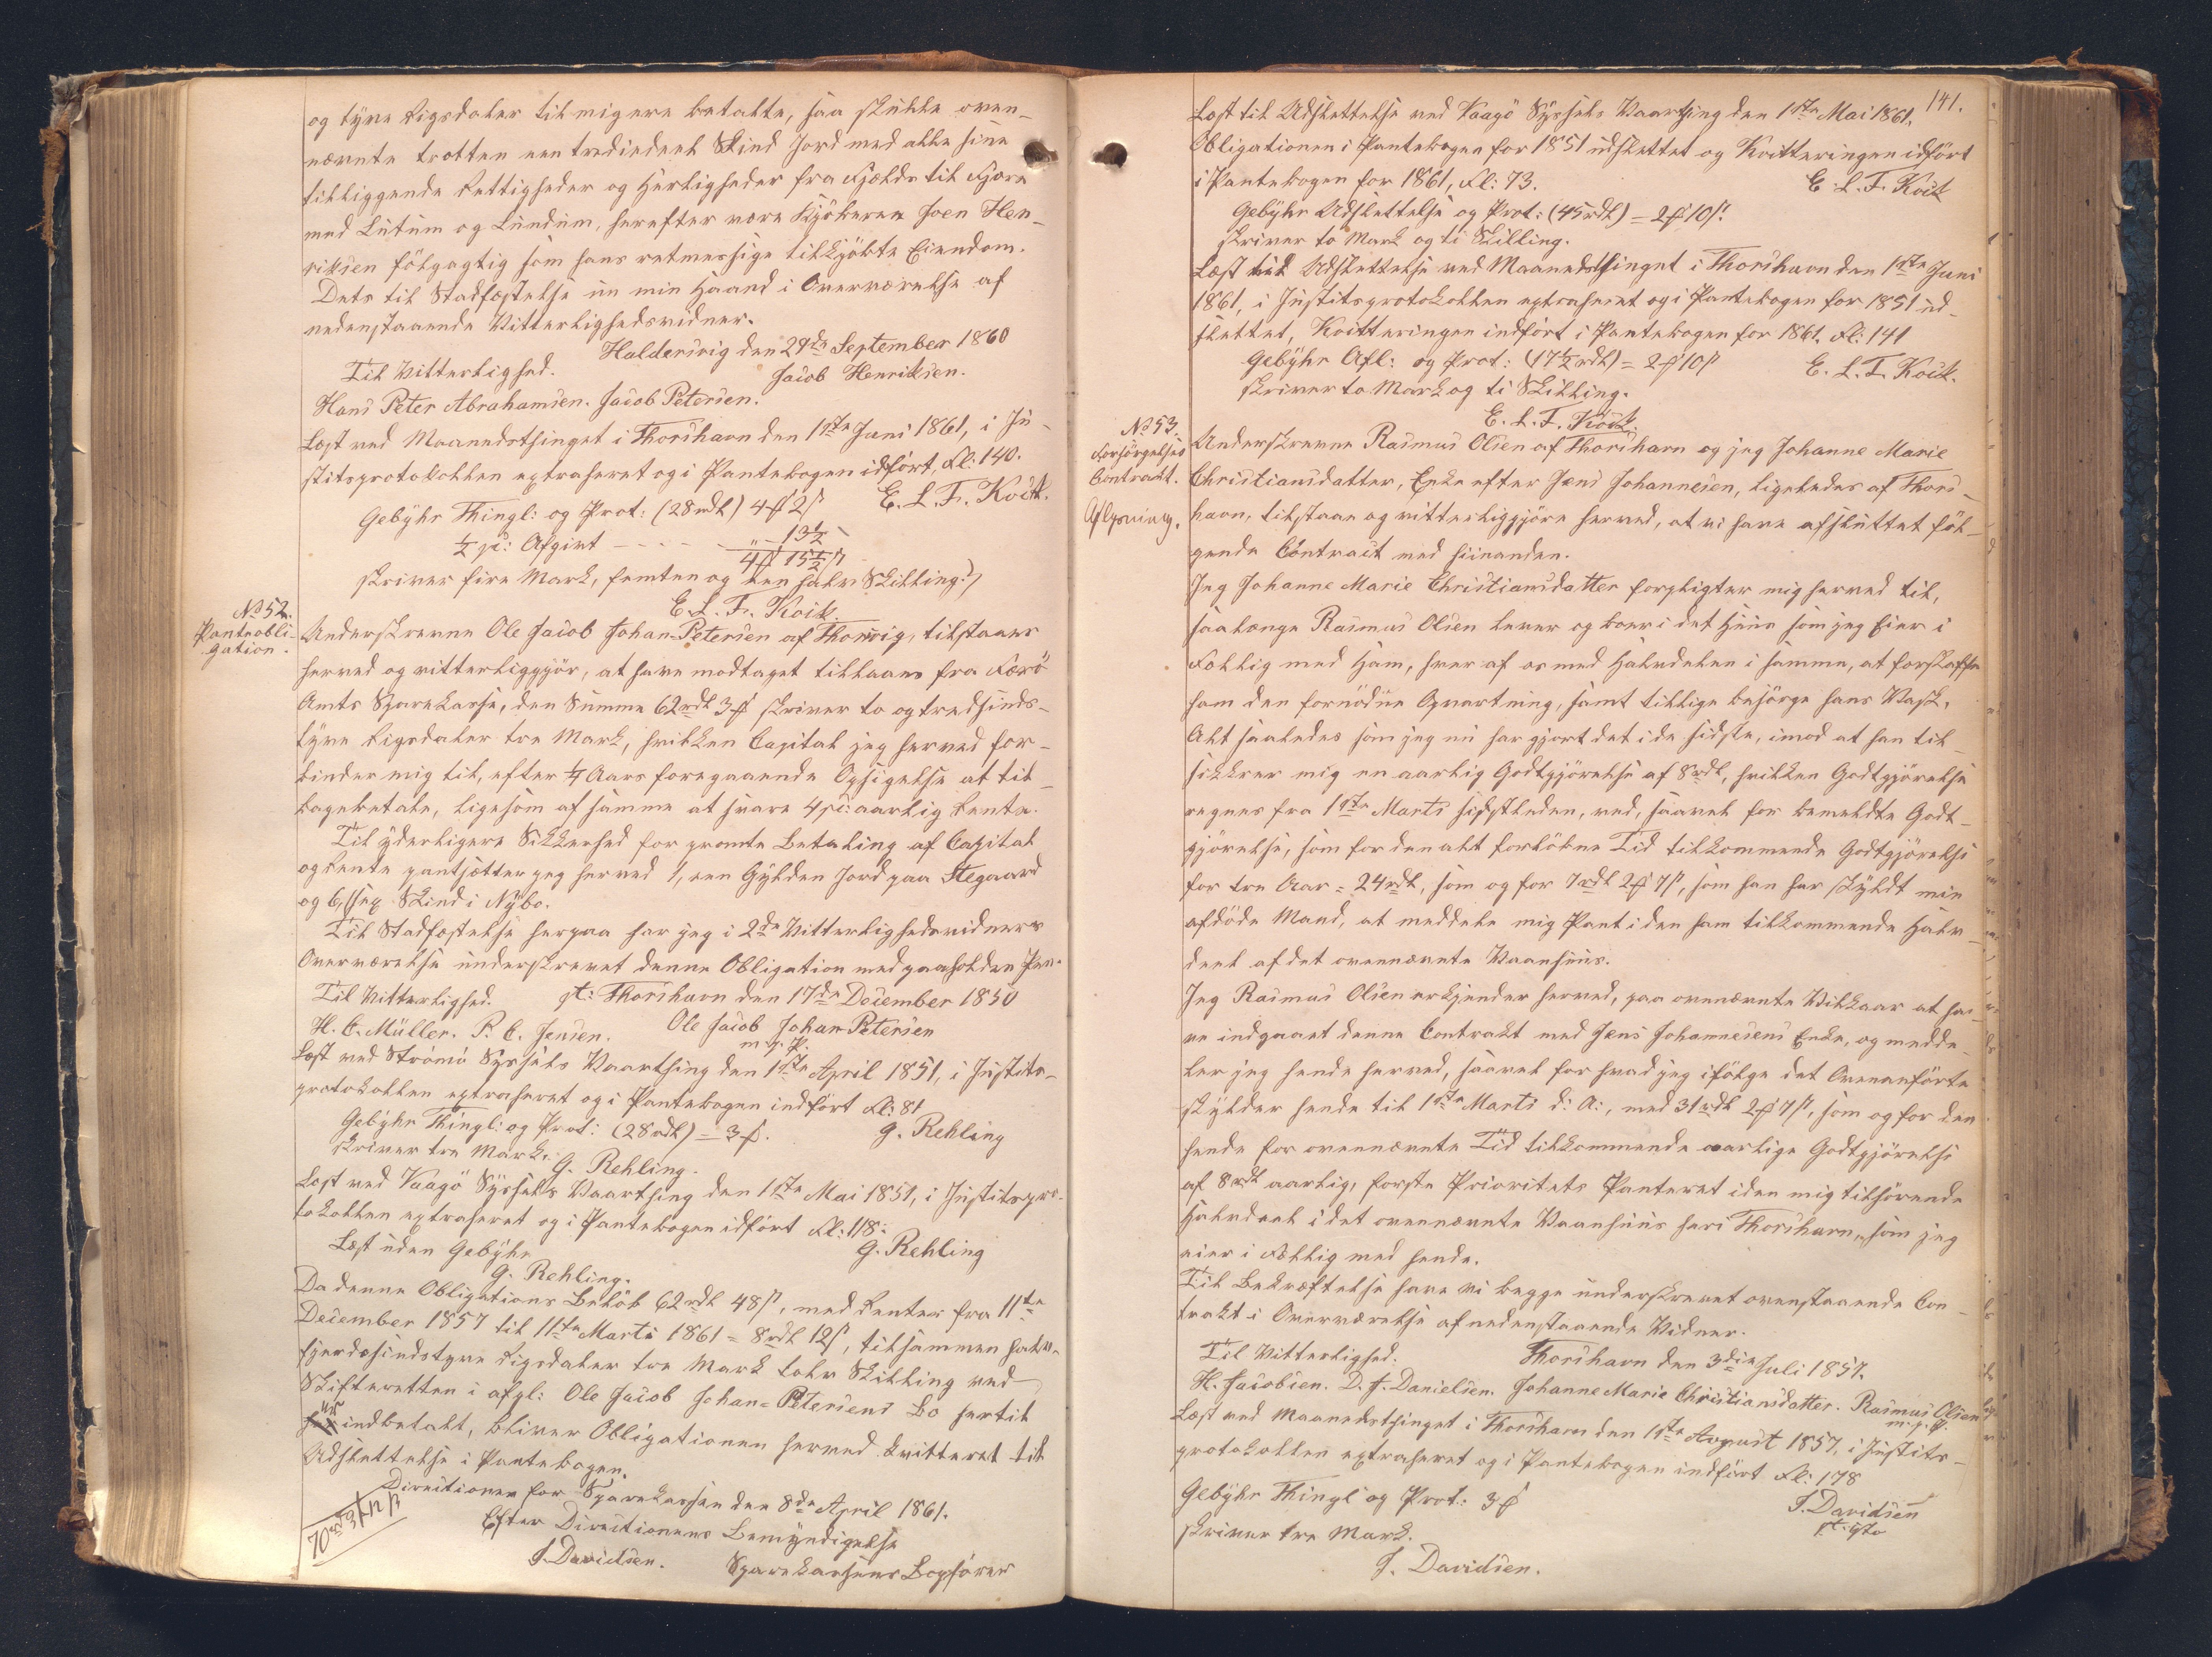 og tyve Rigsdaler til mig ere betalte, saa skulle oven-
nævnte trotten een trediedeel Skind Jord med alle sine
tilliggende Rettigheder og Herligheder fra Fjælde til Fjære
med Lutum og Lundum, herefter være Kjøberen Joen Hen-
riksen følgagtig som hans retmessige tilkjøbte Eiendom.
Dets til Stadfæstelse un min Haand i Overværelse af
nedenstaaende Vitterlighedsvidner.
Haldersvig den 29de September 1860
Til Vitterlighed. Jacob Henriksen.
Hans Peter Abrahamsen. Jacob Petersen.
Læst ved Maanedsthinget i Thorshavn den 1ste Juni 1861, i Ju-
stitsprotokollen extraheret og i Pantebogen idført, Fl: 140.
Gebyhr Thingl: og Prot: (28rdl) 4 ₰ 2 ß E. L. F. Kock.
½ pC: Afgivt - - - - „ - 13½ -
4 ₰ 15½ ß
skriver fire Mark, femten og een halv Skilling.
E. L. F. Kock.
No 52.
Panteobli-
gation.
Underskrevne Ole Jacob Johan Petersen af Thorsvig, tilstaaer
herved og vitterliggjør, at have modtaget tillaans fra Færø
Amts Sparekasse, den Summa 62rdl 3 ₰ skriver to og tredsinds-
tyve Rigsdaler tre Mark, hvilken Capital jeg herved for-
binder mig til, efter ¼ Aars foregaaende Opsigelse at til-
bagebetale, ligesom af samme at svare 4 pC: aarlig Rente.
Til yderligere Sikkerhed for promte Betaling af Capital
og Rente pantsætter jeg herved 1, een Gylden Jord paa Stegaard
og 6, sex Skind i Nybo.
Til Stadfæstelse herpaa har jeg i 2de Vitterlighedsvidners
Overværelse underskrevet denne Obligation med paaholden Pen.
Til Vitterlighed. pt: Thorshavn den 17de December 1850
H. C. Müller. P. C. Jensen. Ole Jacob Johan Petersen
m. p. P.
Læst ved Strømø Syssels Vaarthing den 1ste April 1851, i Justits-
protokollen extraheret og i Pantebogen indført Fl: 81
Gebyhr Thingl: og Prot: (28rdl) = 3 ₰. G. Rehling
skriver tre Mark. G. Rehling.
Læst ved Vaagø Syssels Vaarthing den 11ste Mai 1851, i Justitspro-
tokollen extraheret og i Pantebogen idført Fl: 118.
Læst uden Gebyhr G. Rehling
G. Rehling.
Da denne Obligations Beløb 62rdl 48 ß, med Renter fra 11te
December 1857 til 11te Marts 1861 = 8rdl 12 ß, tilsammen halv-
fjerdesindstyve Rigsdaler tre Mark tolv Skilling ved
Skifteretten i afgl: Ole Jacob Johan Petersens Bo hertil
nu indbetalt, bliver Obligationen herved kvitteret til
Udslettelse i Pantebogen.
Directionen for Sparekassen den 8de April 1861.
70rd 3 ₰ 12 ß Efter Directionens Bemyndigelse
J. Davidsen. Sparekassens Bogfører
141.
Læst til Udslettelse ved Vaagø Syssels Vaarthing den 1ste Mai 1861.
Obligationen i Pantebogen for 1851 udslettet og Kvitteringen idført
i Pantebogen for 1861, Fl: 73. E. L. F. Kock
Gebyhr Udslettelse og Prot: (45rdl) = 2 ₰ 10 ß
skriver to Mark og ti Skilling.
Læst til Udslettelse ved Maanedsthinget i Thorshavn den 1ste Juni
1861, i Justitsprotokollen extraheret og i Pantebogen for 1851 ud-
slettet, Kvitteringen indført i Pantebogen for 1861. Fl: 141
Gebyhr Afl: og Prot: (17½rdl) = 2 ₰ 10 ß E. L. F. Kock.
skriver to Mark og ti Skilling.
E. L. F. Kock.
No 53.
Forsørgelses
Contrakt.
Aflysning.
Underskrevne Rasmus Olsen af Thorshavn og jeg Johanne Marie
Christiansdatter, Enke efter Jens Johannesen, ligeledes af Thors-
havn, tilstaae og vitterliggjøre herved, at vi have afsluttet føl-
gende Contract med hinanden.
Jeg Johanne Marie Christiansdatter forpligter mig herved til,
saalænge Rasmus Olsen lever og boer i det Huus som jeg Eier i
Fællig med Ham, hver af os med Halvdelen i samme, at forskaffe
ham den fornødne Opvartning, samt tillige besørge hans Vask,
Alt saaledes som jeg nu har gjort det i de sidste, imod at han til-
sikkrer mig en aarlig Godtgjørelse af 8rdl, hvilken Godtgjørelse
regnes fra 1ste Marts sidstleden, ved, saavel for bemeldte Godt-
gjørelse, som for den alt forløbne Tid tilkommende Godtgjørelse
for tre Aar = 24rdl, som og for 7rdl 2 ₰ 7 ß, som han har skyldt min
afdøde Mand, at meddele mig Pant i den ham tilkommende Halv-
deel af det ovennævnte Vaanhuus.
Jeg Rasmus Olsen erkjender herved, paa ovenævnte Vilkaar at ha-
ve indgaaet denne Contrakt med Jens Johannesens Enke, og medde-
ler jeg hende herved, saavel for hvad jeg ifølge det Ovenanførte
skylder hende til 1ste Marts d: A:, med 31rdl 2 ₰ 7 ß, som og for den
hende for ovennævnte Tid tilkommende aarlige Godtgjørelse
af 8rdl aarlig, første Prioritets Panteret i den mig tilhørende
Halvdeel i det ovennævnte Vaanhuus her i Thorshavn, som jeg
eier i Fællig med hende.
Til Bekræftelse have vi begge underskrevet ovenstaaende Con-
trakt i Overværelse af nedenstaaende Vidner.
Til Vitterlighed. Thorshavn den 3die Juli 1857.
H. Jacobsen. D. J. Danielsen. Johanne Marie Christiansdatter. Rasmus Olsen
m. p. P.
Læst ved Maanedsthinget i Thorshavn den 1ste August 1857, i Justits-
protokollen extraheret og i Pantebogen indført Fl: 178
Gebyhr Thingl og Prot: 3 ₰ J. Davidsen
skriver tre Mark. pt: cst
J. Davidsen.